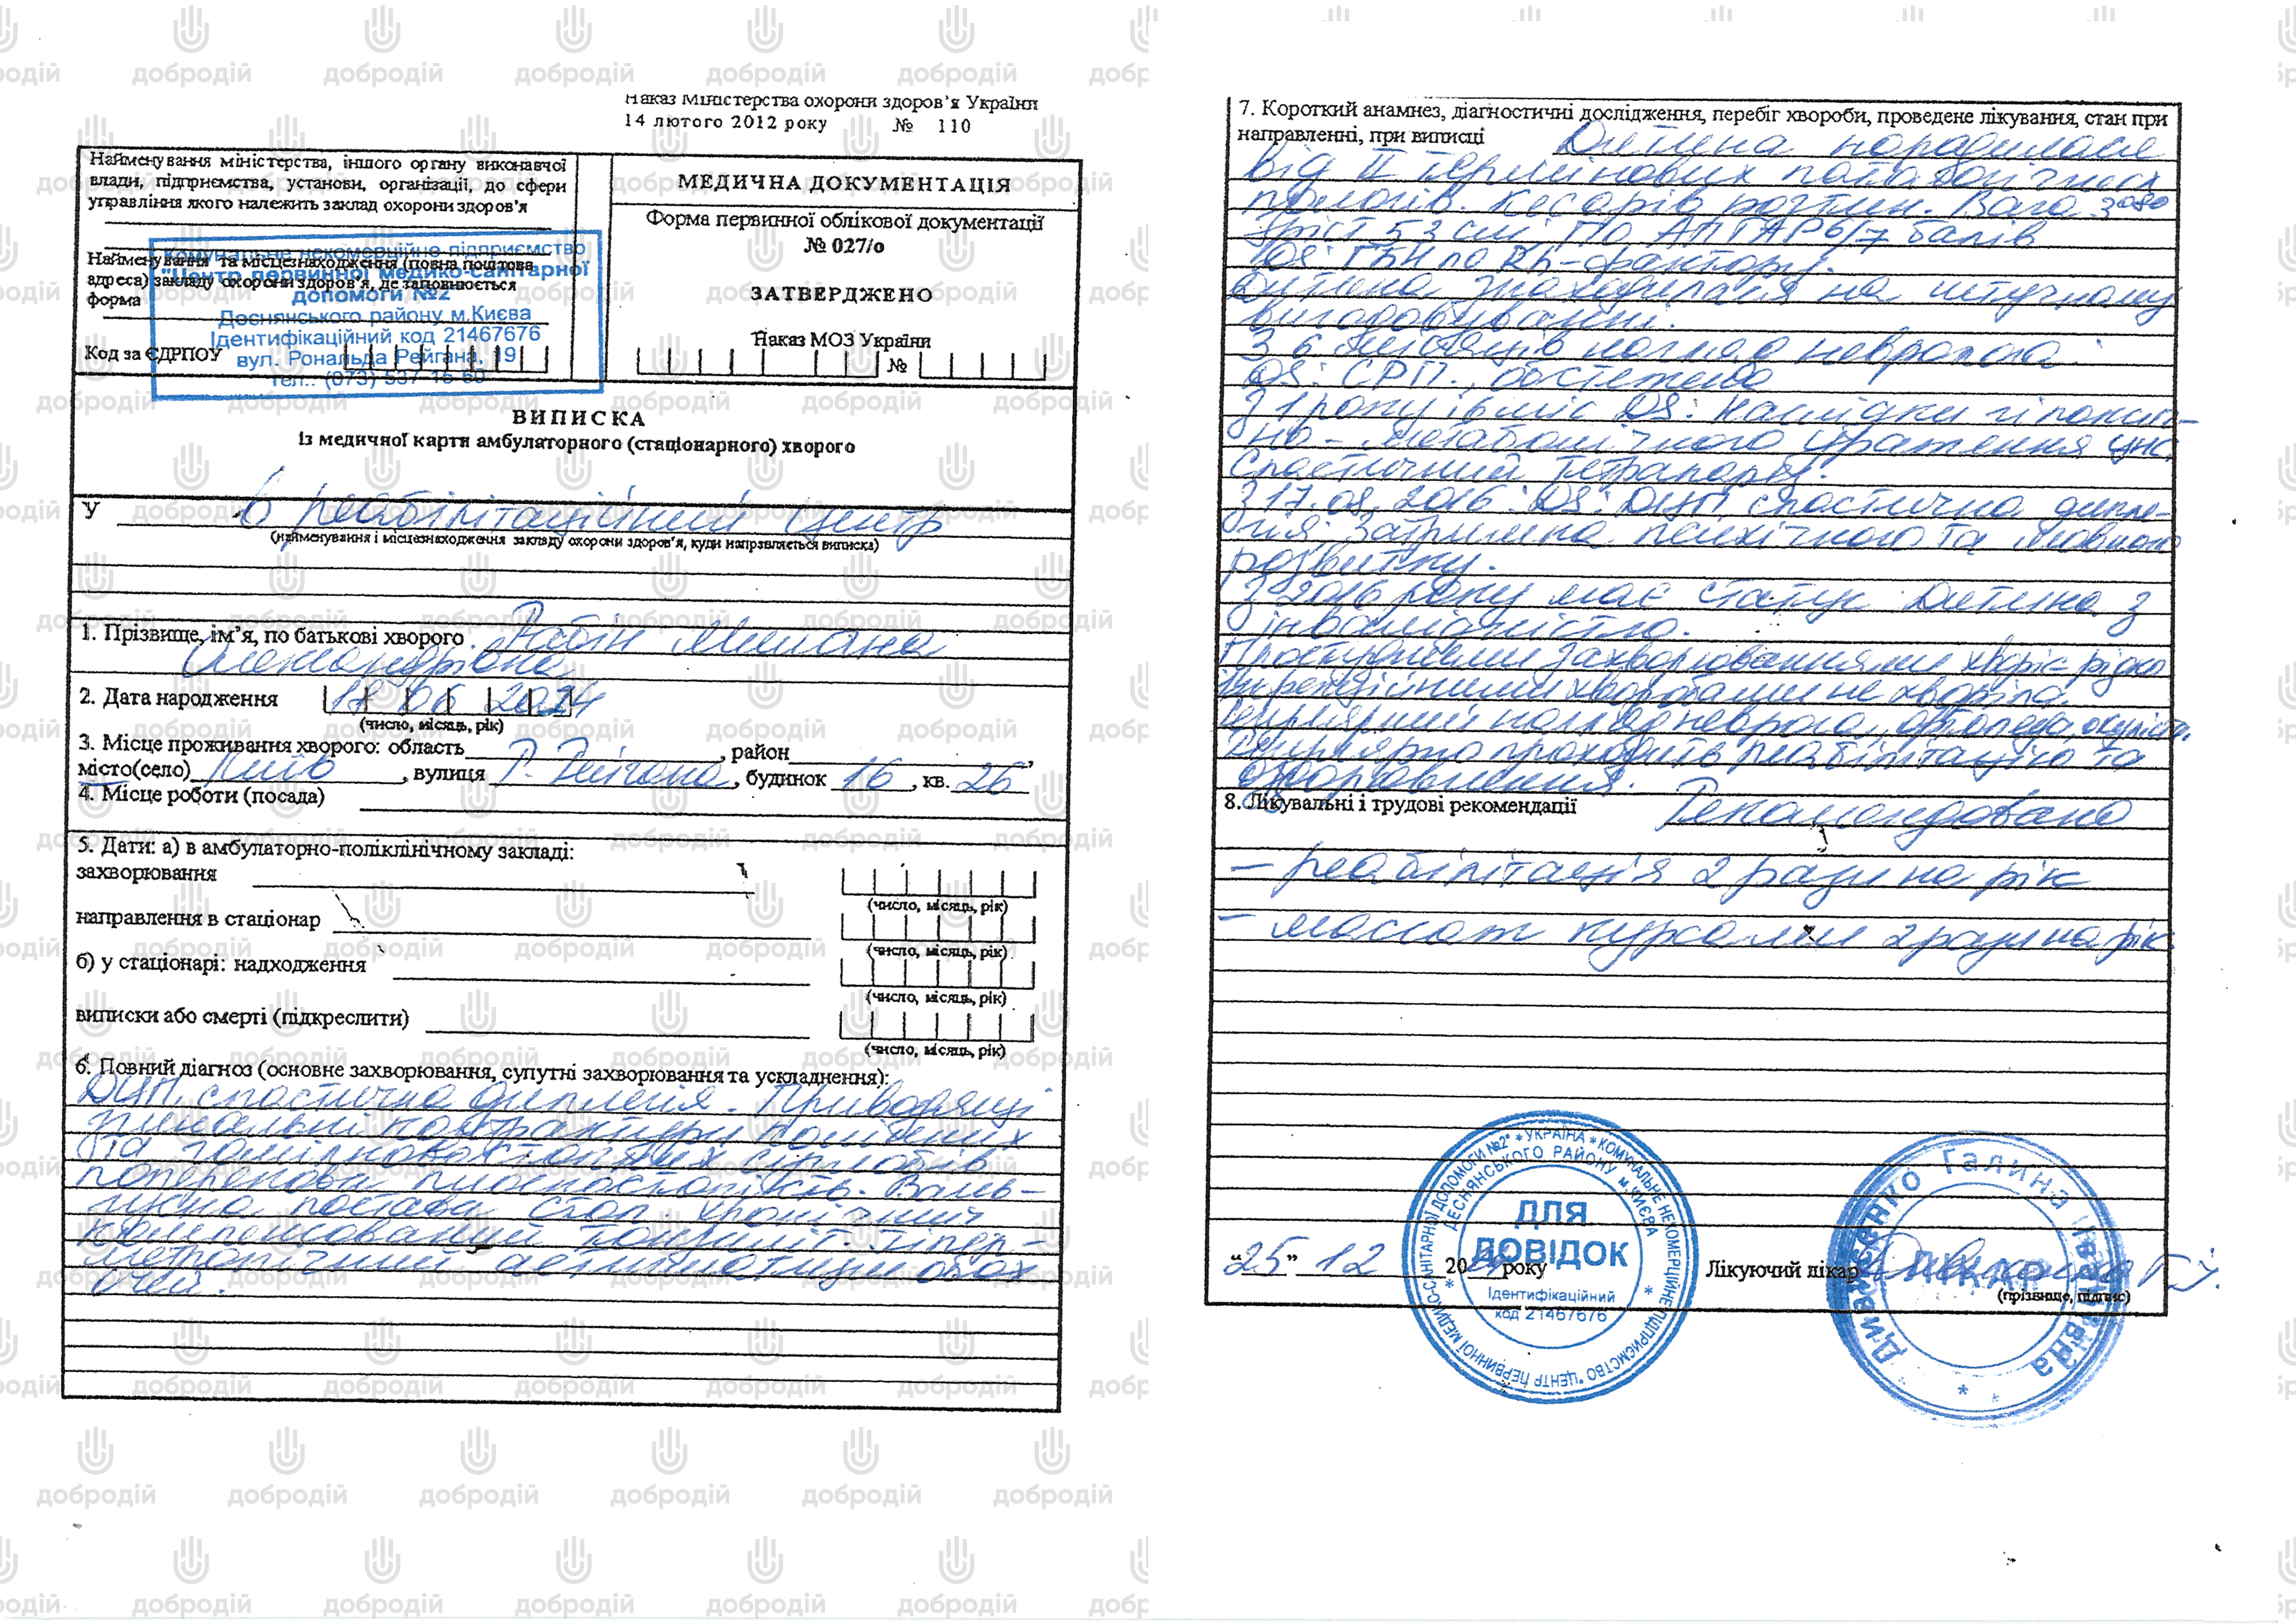 Наказ Міністерства охорони здоров'я України
14 лютого 2012 року № 110
Найменування міністерства, іншого органу виконавчої
влади, підприємства, установи, організації, до сфери
управління якого належить заклад охорони здоров'я
Найменування та місцезнаходження (повна поштова
адреса) закладу охорони здоров'я, де заповнюється
форма
Код за ЄДРПОУ
Комунальне некомерційне підприємство
"Центр первинної медико-санітарної
допомоги №2"
Деснянського району м.Києва
Ідентифікаційний код 21467676
вул. Рональда Рейгана, 19
тел.: (073) 537-16-60
МЕДИЧНА ДОКУМЕНТАЦІЯ
Форма первинної облікової документації
№ 027/о
ЗАТВЕРДЖЕНО
Наказ МОЗ України
№
ВИПИСКА
із медичної карти амбулаторного (стаціонарного) хворого
У в реабілітаційний центр
(найменування і місцезнаходження закладу охорони здоров'я, куди направляється виписка)
1. Прізвище, ім'я, по батькові хворого
Олександрівна
2. Дата народження 06
(число, місяць, рік)
3. Місце проживання хворого: область , район ,
місто(село) Київ , вулиця Р. , будинок 16 , кв. 26
4. Місце роботи (посада)
5. Дати: а) в амбулаторно-поліклінічному закладі:
захворювання
(число, місяць, рік)
направлення в стаціонар
(число, місяць, рік)
б) у стаціонарі: надходження
(число, місяць, рік)
виписки або смерті (підкреслити)
(число, місяць, рік)
6. Повний діагноз (основне захворювання, супутні захворювання та ускладнення):
ДЦП, спастична диплегія. Привідні
контрактури колінних
та гомілковостопних суглобів
плоскостопість. Валь-
гусна постава стоп. Хронічний
компенсований тонзиліт. Гіпер-
метропічний астигматизм обох
очей.
7. Короткий анамнез, діагностичні дослідження, перебіг хвороби, проведене лікування, стан при
направленні, при виписці Дитина народилася
від II термінових патологічних
пологів. Кесарів розтин. Вага 3080
Зріст 53 см. По АПГАР 6/7 балів
DS: ГХН по Rh-фактору.
Дитина знаходилася на штучному
вигодовуванні.
З 6 місяців нагляд невролога
DS: СРП., обстежена
З 1 року і 6 міс DS: Наслідки гіпоксич-
но-метаболічного ураження ЦНС.
Спастичний тетрапарез.
З 17.08.2016: DS: ДЦП спастична дипле-
гія. Затримка психічного та мовного
розвитку.
З 2016 року має статус Дитина з
інвалідністю.
Простудними захворюваннями хворіє рідко
Інфекційними хворобами не хворіла.
Регулярний нагляд невролога, ортопеда, окуліста.
Регулярно проходить реабілітацію та
оздоровлення.
8. Лікувальні і трудові рекомендації Рекомендовано
- реабілітація 2 рази на рік
- массаж курсами 2 рази на рік.
"25" 12 20 року
Лікуючий лікар
(прізвище, підпис)
* УКРАЇНА * КОМУНАЛЬНЕ НЕКОМЕРЦІЙНЕ ПІДПРИЄМСТВО "ЦЕНТР ПЕРВИННОЇ МЕДИКО-САНІТАРНОЇ ДОПОМОГИ №2"
ДЕСНЯНСЬКОГО РАЙОНУ м.КИЄВА
ДЛЯ
ДОВІДОК
Ідентифікаційний
код 21467676
Галина Іванівна
ЛІКАР
добродій